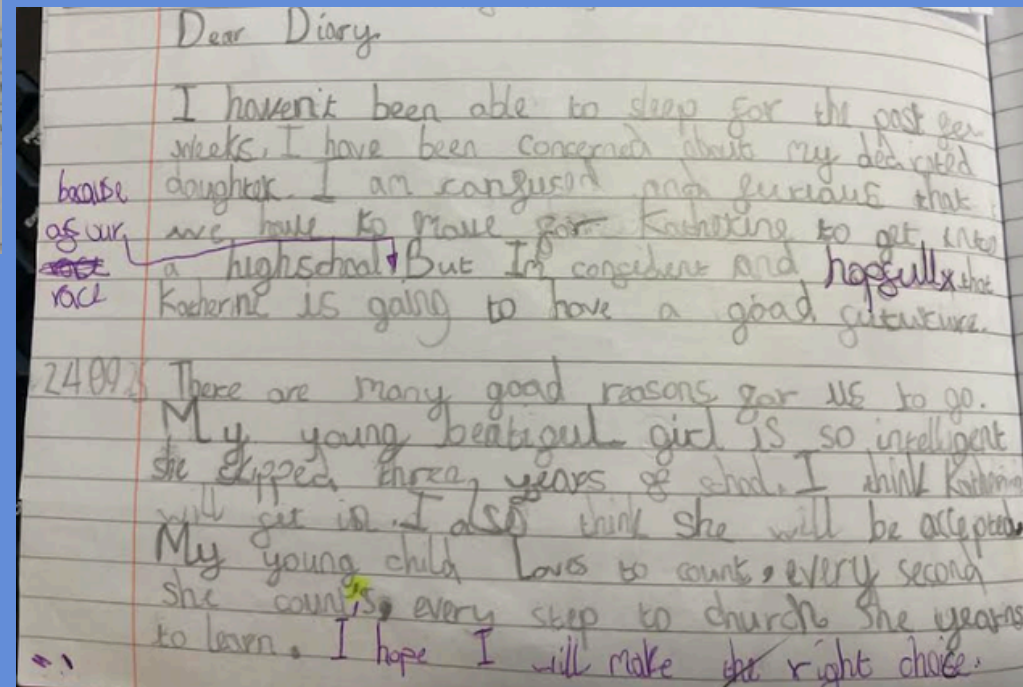 Dear Diary
I haven't been able to sleep for the past few
weeks. I have been concerned about my dedicated
because daughter. I am confused and furious that
of our we have to move for Katherine to get into
a highschool But I'm confident and hopfully that
race Katherine is going to have a good
24.09.25 There are many good reasons for us to go.
My young beatifull girl is so intelligent
she skipped three years of school. I think Katherine
will get in. I also think she will be accepted.
My young child Loves to count, every second
she counts, every step to church she yearns
to learn. I hope I will make the right choice.